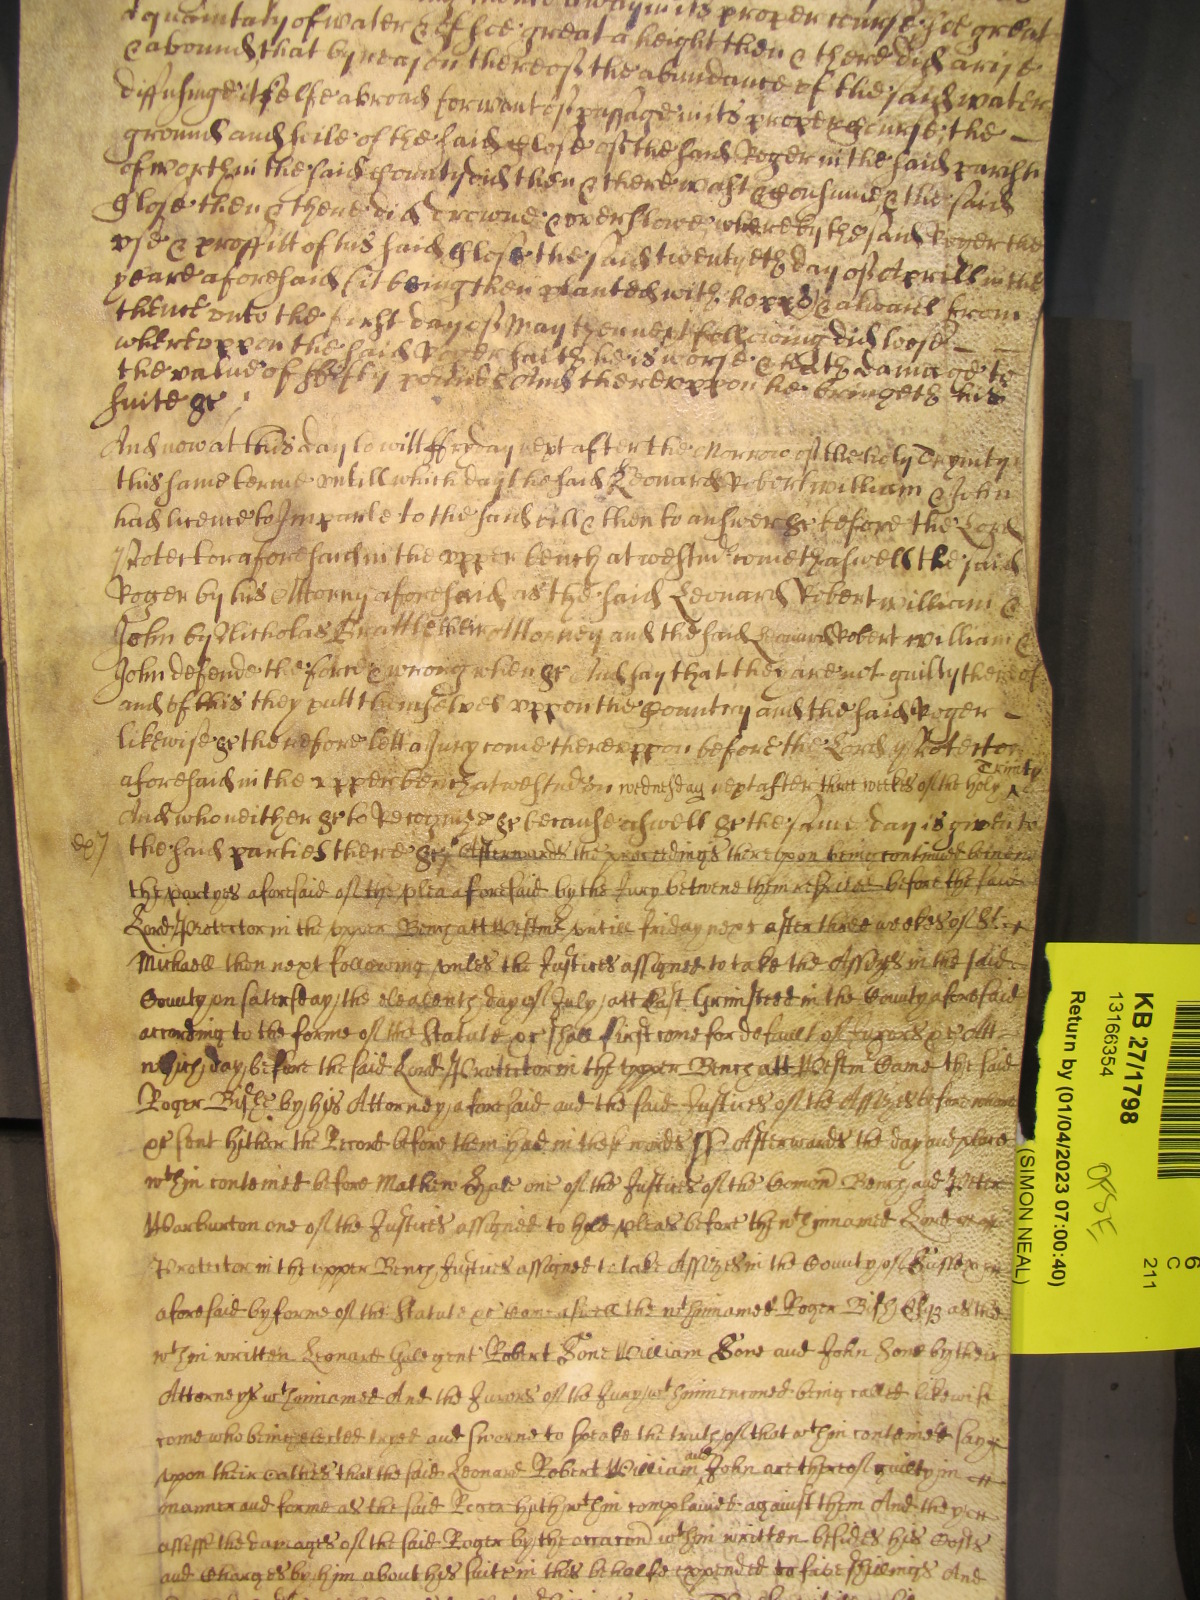 quantity of water & of soe great a height then & there did arise
& abound that by reason thereof the abundance of the said water
diffusinge it selfe abroad for want of passage in its proper course the
ground and soile of the said Close of the said Roger in the said parish
of worth in the said County did then & there wast & consume & the said
Close then & there did drowne & overflowe whereby the said Roger the
use & proffitt of his said Close the said twentyeth day of Aprill in the
yeare aforesaid (it being then planted with hopps) & alwaies from
thence unto the first day of May then next following did loose
whereuppon the said Roger saith he is worse & hath damage to
the value of fifty pounds And thereuppon he bringeth his
suite &c
And now at this day to witt ffryday next after the Morrow of the holy Trynity
this same terme untill which day the said Leonard Robert william & John
had licence to Imparle to the said bill & then to answer &c before the Lord
Protector aforesaid in the upper bench at westmr cometh aswell the said
Roger by his Attorny aforesaid as the said Leonard Robert william &
John by Nicholas their Attorney and the said Leonard Robert william &
John defende the force & wrong when &c And say that they are not guilty thereof
and of this they putt themselves uppon the Country and the said Roger
likewise &c therefore lett a Jury come thereuppon before the Lord Protector
aforesaid in the upper bench at westmr on wednesday next after three weekes of the holy Trinity
And who neither &c to Recognize &c because aswell &c the same day is given to
the said parties there &c Afterwards the proceedings thereupon being continued betweene
the partyes aforesaid of the plea aforesaid by the Jury betwene them respited before the said
Lord Protector in the upper Bench att Westmr untill friday next after three weekes of St
Michaell then next following unles the Justices assigned to take the Assizes in the said
County on saterday the eleaventh day of July att East Grinsteed in the County aforesaid
according to the forme of the Statute &c shall first come for default of Jurors &c Att
which day before the said Lord Protector in the upper Bench att Westm Came the said
Roger by his Attorney aforesaid and the said Justices of the Assizes before whome
&c sent hither the Record before them had in these words ss Afterwards the day and place
wthin conteined before Mathew Hale one of the Justices of the Comon Bench and Peter
Warburton one of the Justices assigned to hold pleas before the wthinnamed Lord
Protector in the upper Bench Justices assigned to take Assizes in the County of Sussex
aforesaid by forme of the Statute &c Came aswell the wthinnamed Roger as the
wthin written Leonard gent Robert Sone William Sone and John Sone by their
Attorneys wthinnamed And the Jurors of the Jury wthinmenconed being called likewise
come who being elected tryed and sworne to speake the truth of that wthin conteined say
upon their oathes that the said Leonard Robert William and John are thereof guilty in
manner and forme as the said Roger hath wthin complained against them And they
assesse the damages of the said Roger by the occacon wthin written besides his Costs
and Charges by him about his suite in this behalfe expended to five shillings And
KB 27/1798
13166354
Return by (01/04/2023 07:00:40)
(SIMON NEAL)
6
C
211